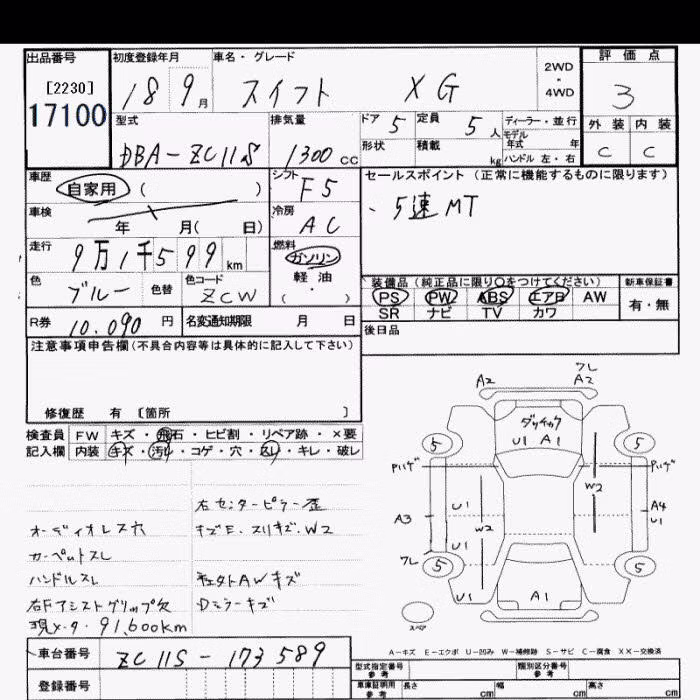 出品番号 初度登録年月 車名・グレード 評価点
[2230] 18 9月 スイフト XG 2WD・4WD 3
17100 型式 排気量 ドア 5 定員 5人 ディーラー・並行 外装 内装
DBA-ZC11S 1300cc 形状 積載 kg モデル年式 年 ハンドル 左・右 C C
車歴 自家用 ( ) シフト F5 セールスポイント (正常に機能するものに限ります)
車検 年 月( 日) 冷房 AC 、5速MT
走行 9万1千599km 燃料 ガソリン 軽油 ( ・ )
色 ブルー 色替 色コード ZCW 装備品 (純正品に限り〇をつけてください) 新車保証書
PS PW ABS エアB AW 有・無
SR ナビ TV カワ
R券 10.090円 名変通知期限 月 日 後日品
注意事項申告欄(不具合内容等は具体的に記入して下さい)
修復歴 有 [箇所 ]
検査員 FW キズ・飛石・ヒビ割・リペア跡・×要
記入欄 内装 キズ・汚れ・コゲ・穴・スレ・キレ・破レ
オーディオレス穴
カーペットスレ
ハンドルスレ
右Fアシストグリップ欠
現メータ 91,600km
右センターピラー歪
キズE.スリキズ.W2
社外AWキズ
Dミラーキズ
A2 ワレ A2
ダッシュカク
U1 A1
5 5
P.ハゲ P.ハゲ
W2
U1 A4
A3 W2 U1
U1
ワレ
5 5
U1 A1
スペア
A-キズ E-エクボ U-凹み W-補修跡 S-サビ C-腐食 XX-交換済
車台番号 ZC11S-173589
登録番号
型式指定番号 参考 類別区分番号 参考
車庫証明用 参考 長さ cm 幅 cm 高さ cm